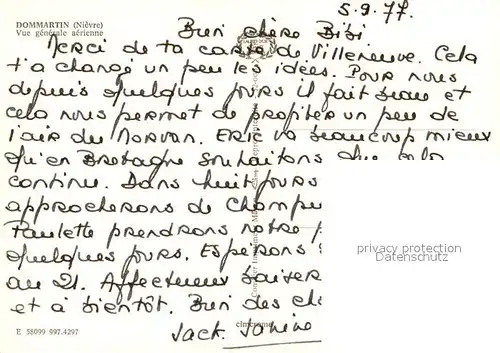 DOMMARTIN (Nièvre)
Vue générale aérienne
5.9.77.
Bien chère Bibi
Merci de ta carte de Villeneuve. Cela
t'a changé un peu les idées. Pour nous
depuis quelques jours il fait beau et
cela nous permet de profiter un peu de
l'air du Morvan. Eric va beaucoup mieux
qu'en Bretagne souhaitons que cela
continue. Dans huit jours
approcherons de
Paulette prendrons notre
quelques jours. Espérons
au 21. Affectueux baisers
et à bientôt. Bien des
Jack. Janine
privacy protection
Datenschutz
cim
E 58099 997.4297